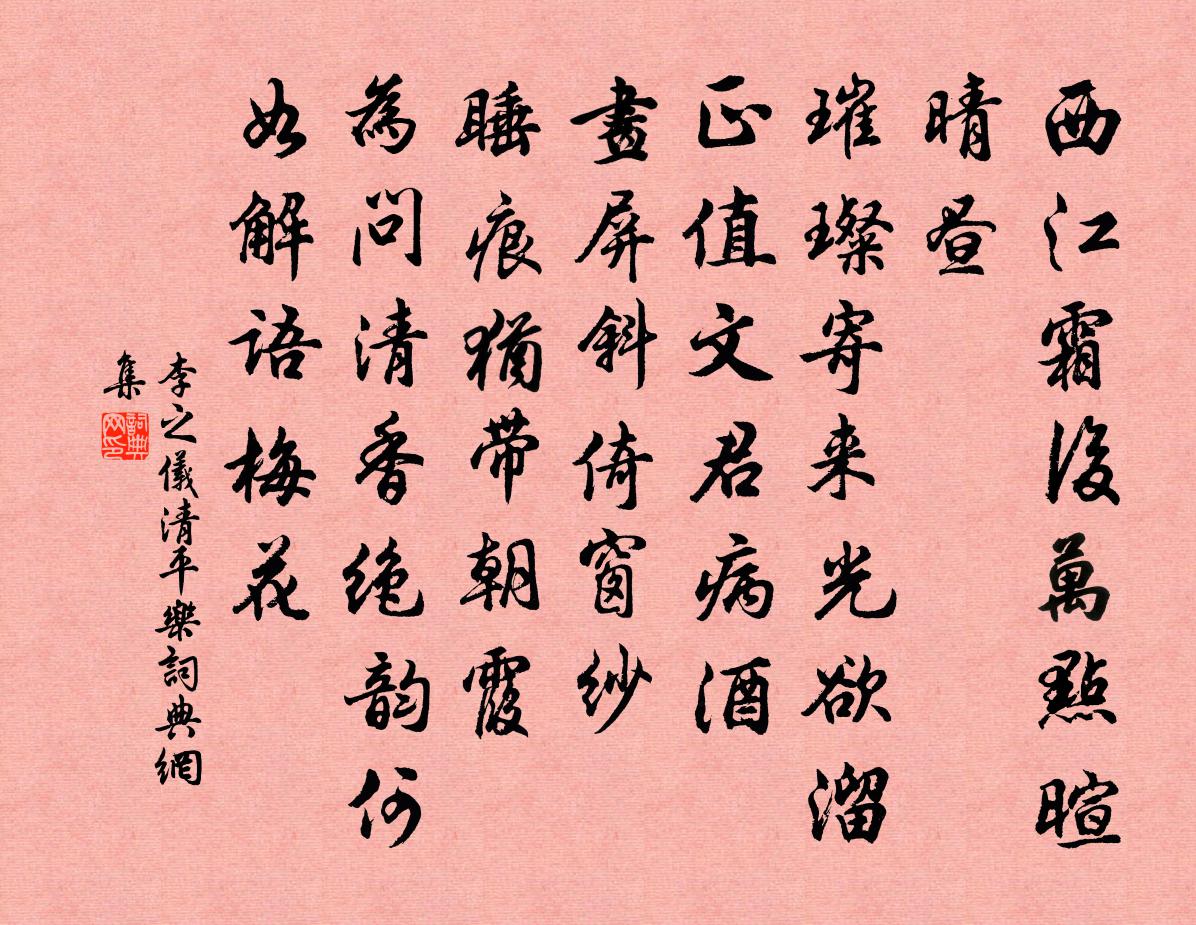 西江霜後萬點暄
晴昼
璀璨寄来光欲溜
正值文君病酒
畫屏斜倚窗紗
睡痕猶带朝霞
為問清香绝韵何
如解語梅花
李之儀清平樂詞典網
集
詞典网印